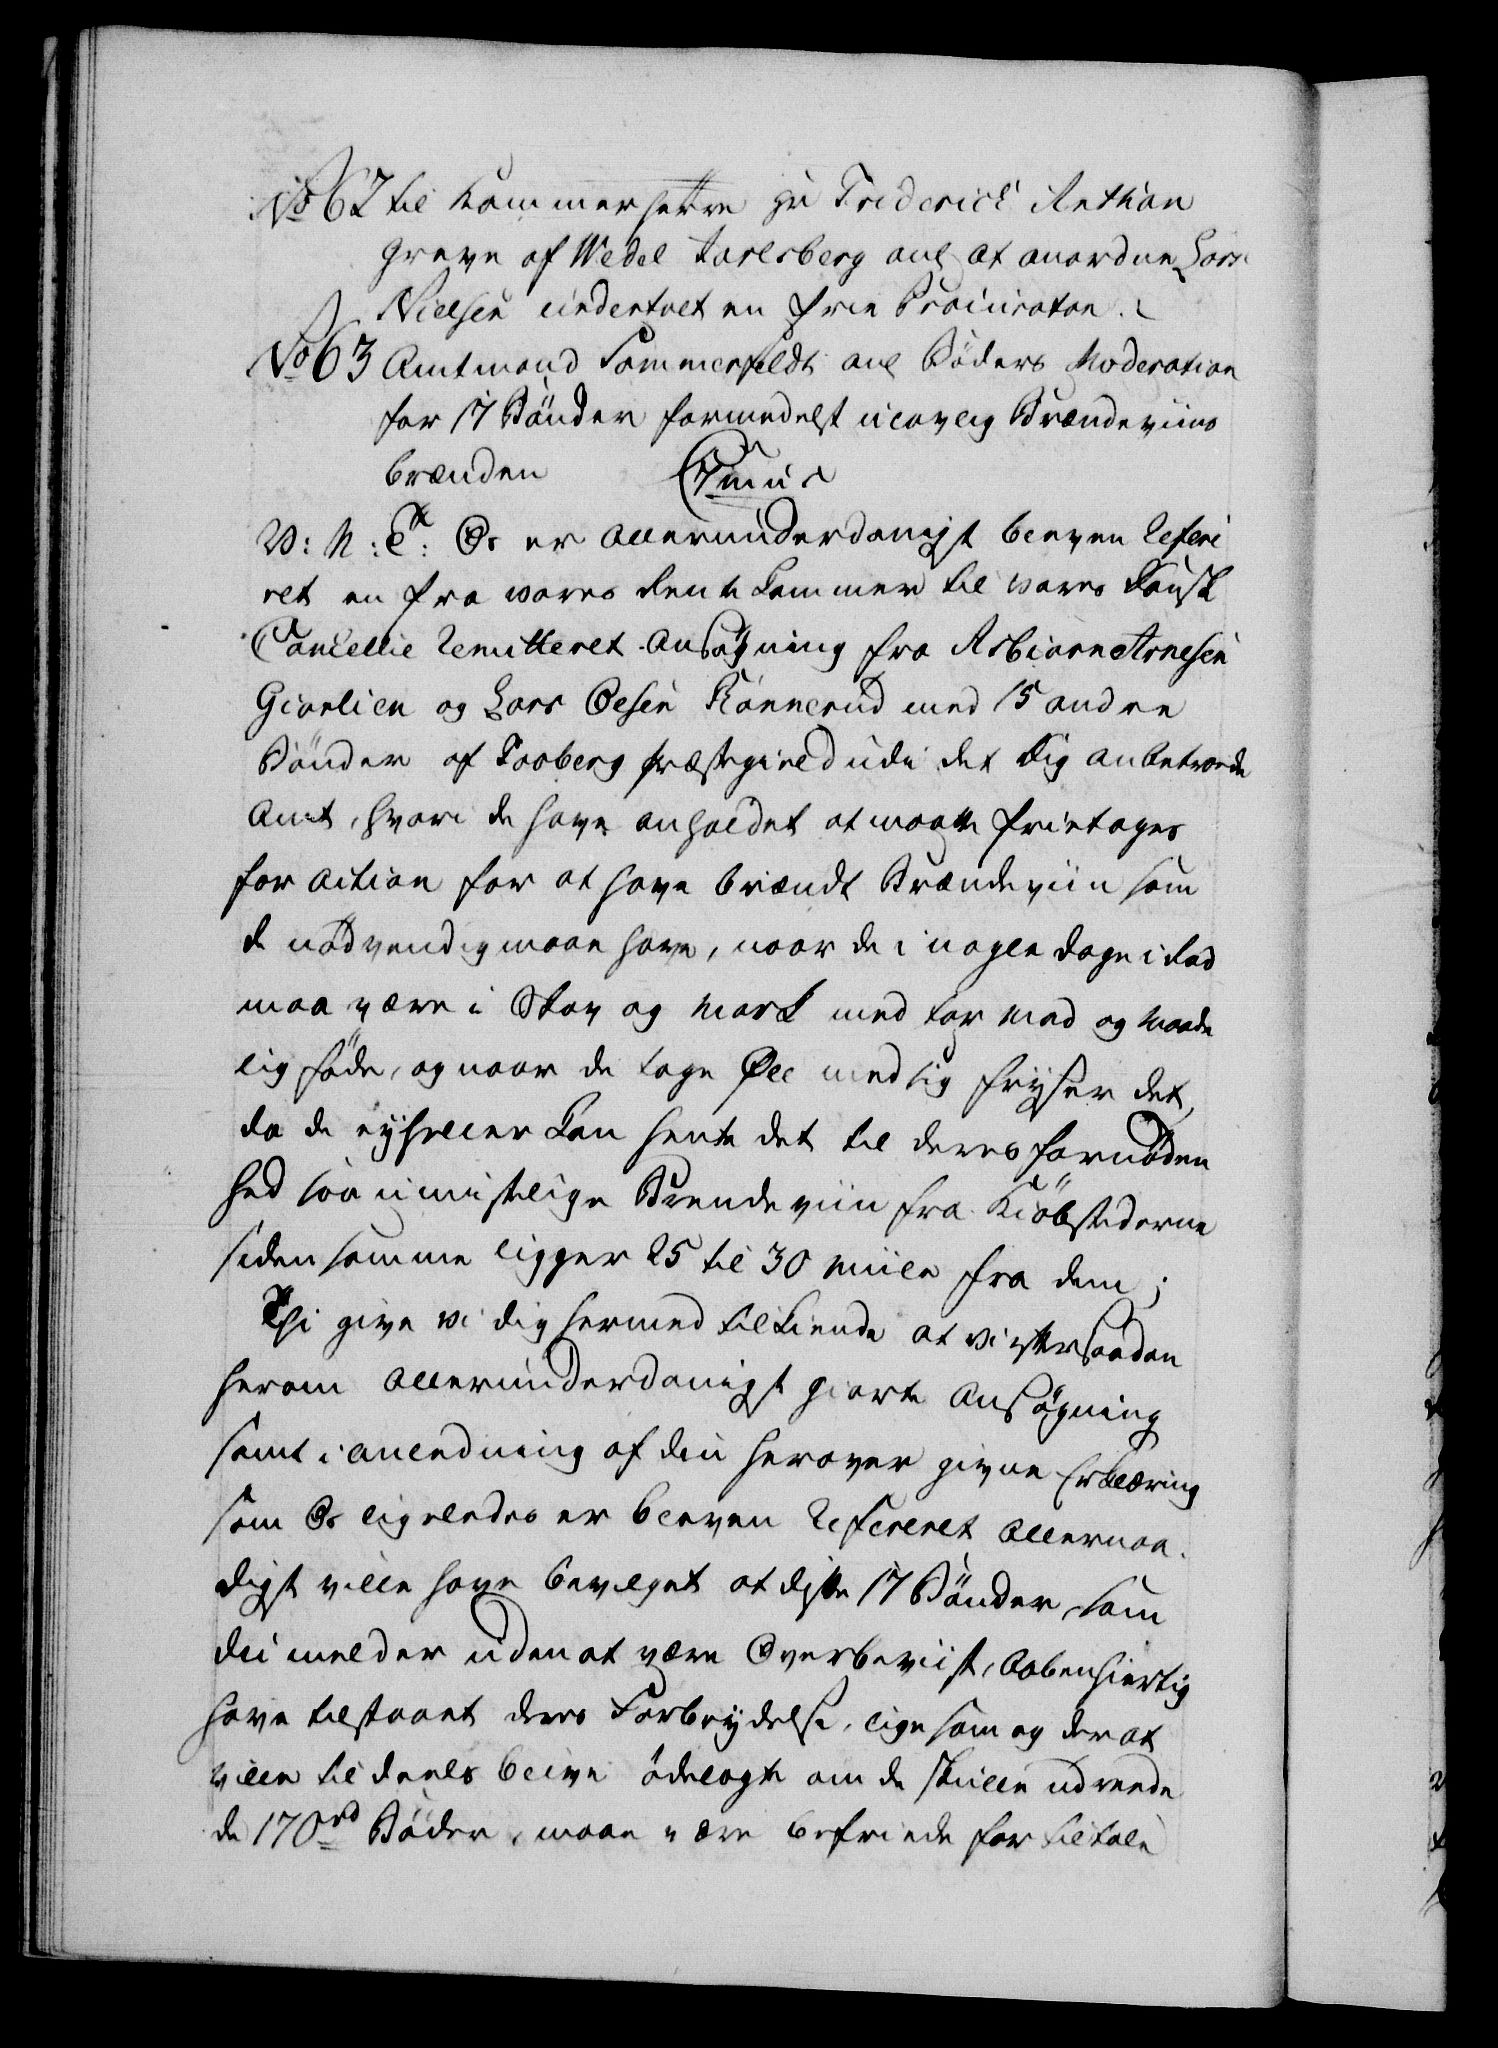 No 62 til Kammerherre Hr Friderich Anthon
Greve af Wedel Jarlsberg anl at anordne Lars
Nielsen undertret en frie Procurator.
No 63 Amtmand Sommerfeldt anl Bøders Moderation
for 17 Bønder formedelst ulovlig Brændeviins
brænden C 7mus
V: N: T: Os er allerunderdanigst bleven Referi
ret en fra vores Rente Kammer til vores Dansk
Cancellie Remitteret Ansøgning fra Asbiørn Arnesen
Giørlien og Lars Olesen Kønnerud med 15 andre
Bønder af Foaberg Præstegield udi det dig anbetroede
Amt, hvori de have anholdet at maatte fritages
for action for at have brændt Brændeviin som
de nødvendig maae have, naar de i nogle dage i Rad
maa være i Skov og Mark med tør Mad og Maade
lig føde, og naar de tage Øll med sig fryser det,
da de ey heller kan hente det til deres fornøden
hed saa umistelige Brendeviin fra Kiøbstæderne
siden samme ligger 25 til 30 Miile fra dem;
Thi give vi dig hermed tilkiende at vi efter saadan
herom allerunderdanigst giorte Ansøgning
samt i anledning af din herover givne Erklæring
som Os ligeledes er bleven Refereret allernaa-
digst ville have bevilget at disse 17 Bønder, som
du melder uden at være Overbeviist, Aabenhiertig
have tilstaaet deres Forbrydelse, lige som og der at
ville til deels blive ødelagte om de skulle udreede
de 170 rd Bøder, maae være befriede for tiltale